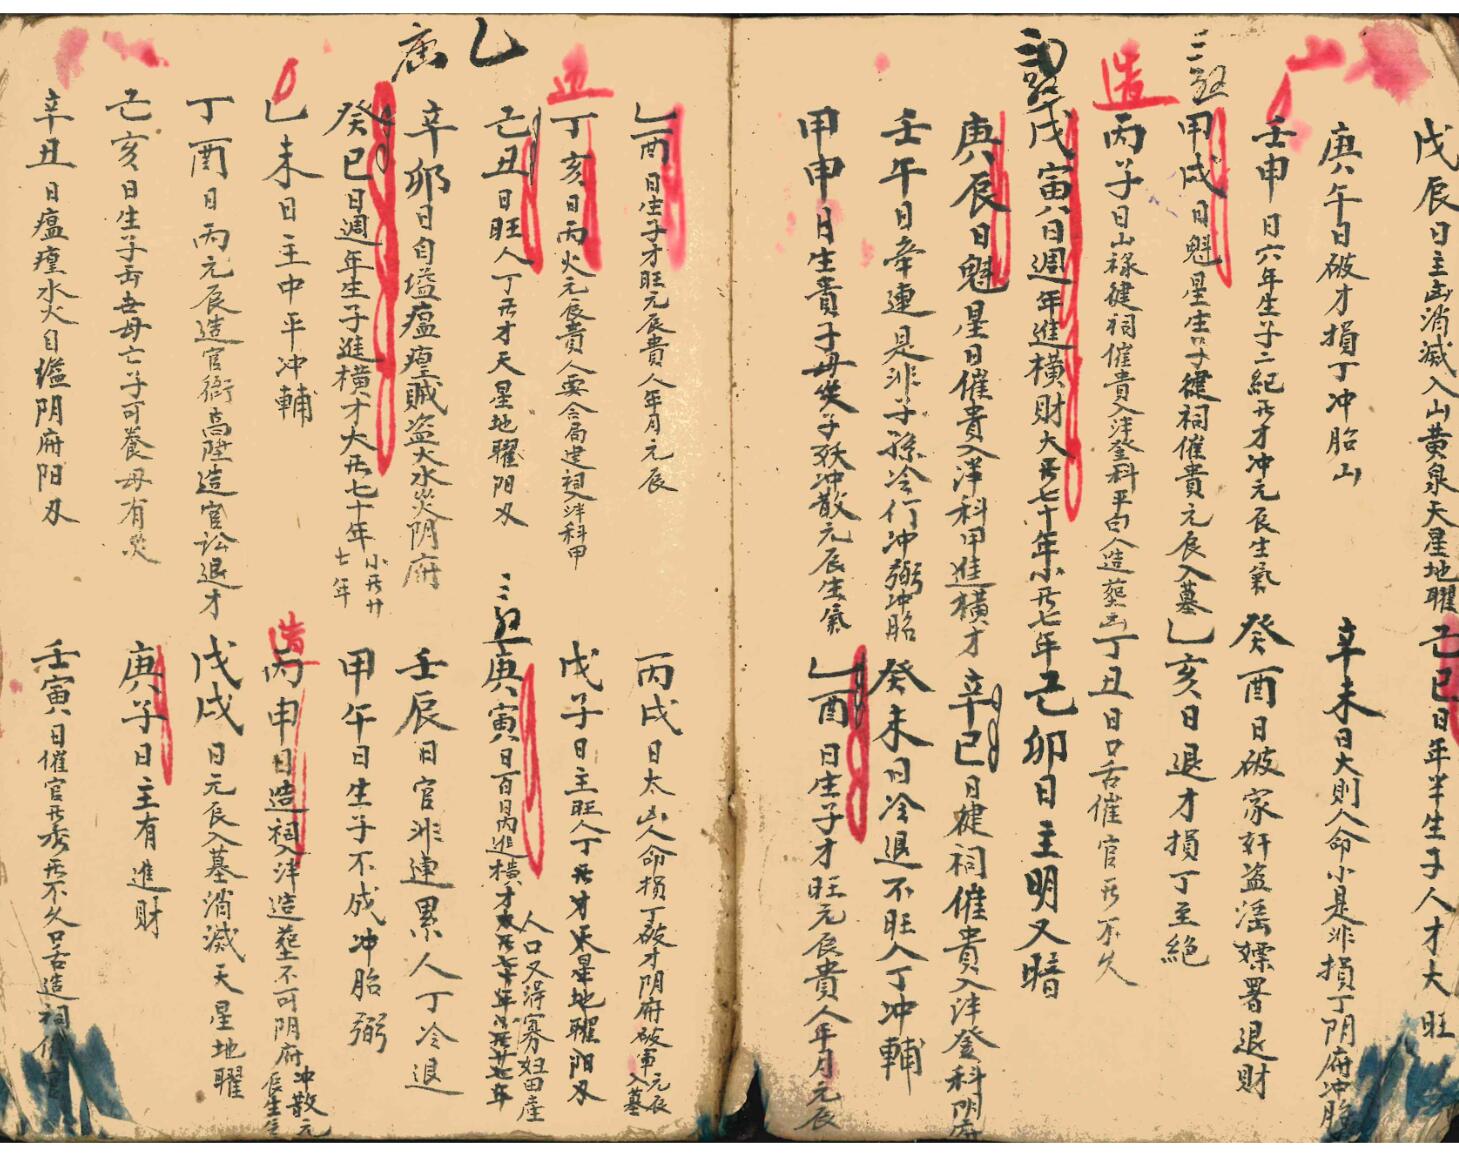 戊辰日主凶消滅入山黃泉天星地曜
己巳日年半生子人才大旺
庚午日破才損丁冲胎山
辛未日大則人命小是非損丁阴府冲胎
山
壬申日六年生子二紀死才冲元辰生氣
癸酉日破家奸盗淫嫖署退財
三
甲戌日魁星生子健祠催貴元辰入墓
乙亥日退才損丁至絶
造
丙子日山禄健祠催貴入泮登科平白人造葬凶
丁丑日口舌催官不久
戊寅八日週年進横財大旺七十年小旺七年
己卯日主明又暗
庚辰日魁星日催貴入泮科甲進横才
辛巳日健祠催貴入泮登科阴府
壬午日牵連是非子孫冷行冲弼冲胎
癸未日冷退不旺人丁冲輔
甲申日生貴子母災子殀冲散元辰生氣
乙酉日生子才旺元辰貴人年月元辰
乙唐
乙酉日生子才旺元辰貴人年月元辰
丙戌日太山人命損丁破才阴府破軍元辰入墓
丁亥日丙火元辰貴人要合局建祠入泮科甲
戊子日主旺人丁旺才天星地曜阳刃
己丑日旺人丁旺才天星地曜阳刃
庚寅日百日内進横才大旺七十年小旺廿七年
人口又得寡妇田産
辛卯日自缢瘟瘽贼盗大水災阴府
壬辰日官非連累人丁冷退
癸巳日週年生子進横才大旺七十年
小旺廿七年
甲午日生子不成冲胎弼
己未日主中平冲輔
造
丙申日造祠入泮造葬不可阴府冲散元辰生氣
丁酉日丙元辰造官衙高陞造官訟退才
戊戌日元辰入墓消滅天星地曜
己亥日生子母亡子可養母有災
庚子日主有進財
辛丑日瘟瘽水火自缢阴府阳刃
壬寅日催官旺秀旺不久口舌造祠催官